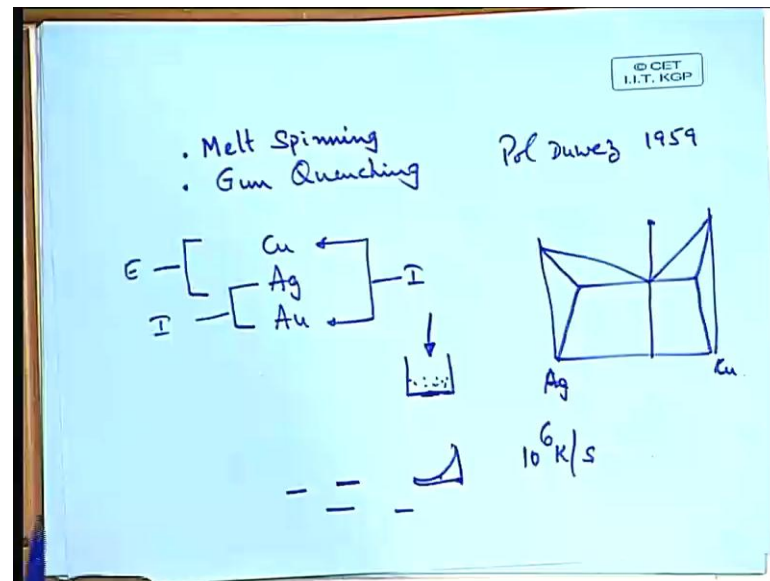 © CET
I.I.T. KGP
. Melt Spinning
. Gun Quenching
Pol Duwez 1959
E Cu
Ag I
I Au
Ag Cu
10⁶ K/S